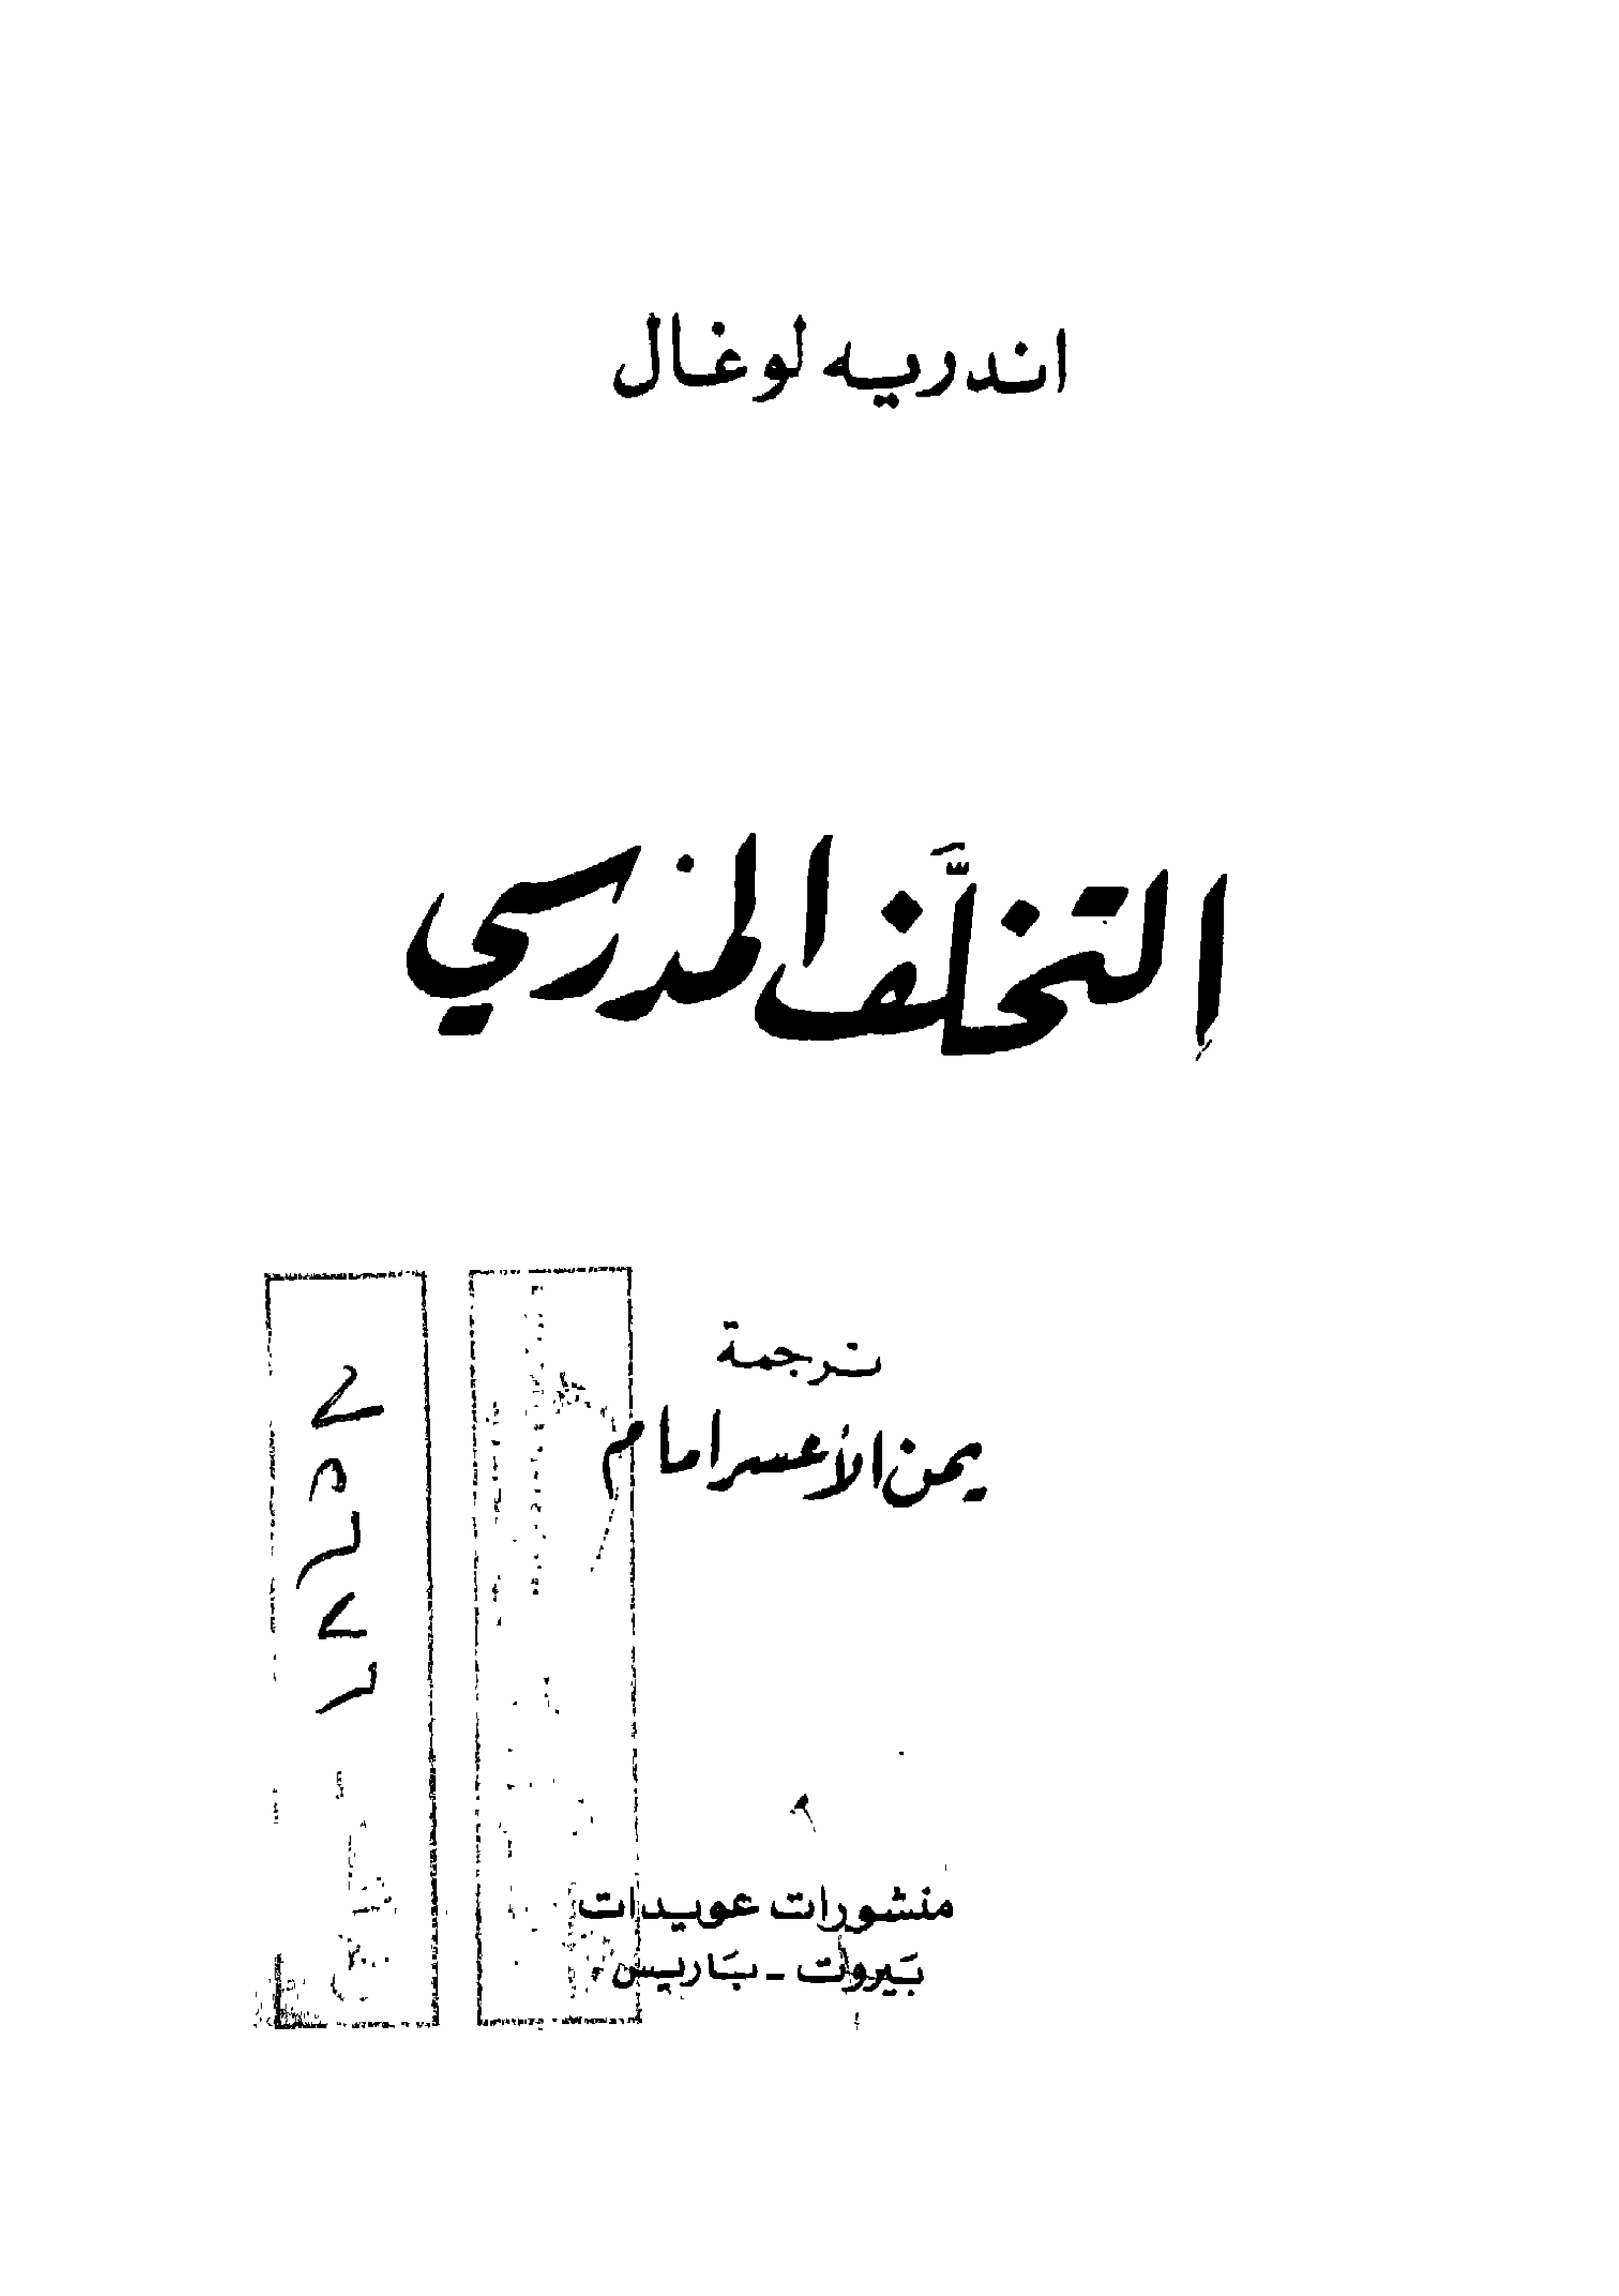 اندريه لوغال
التخلَّف المدرسي
ترجمة
يمن الأعسر امام
منشورات عويدات
بَيروت - بَاريس